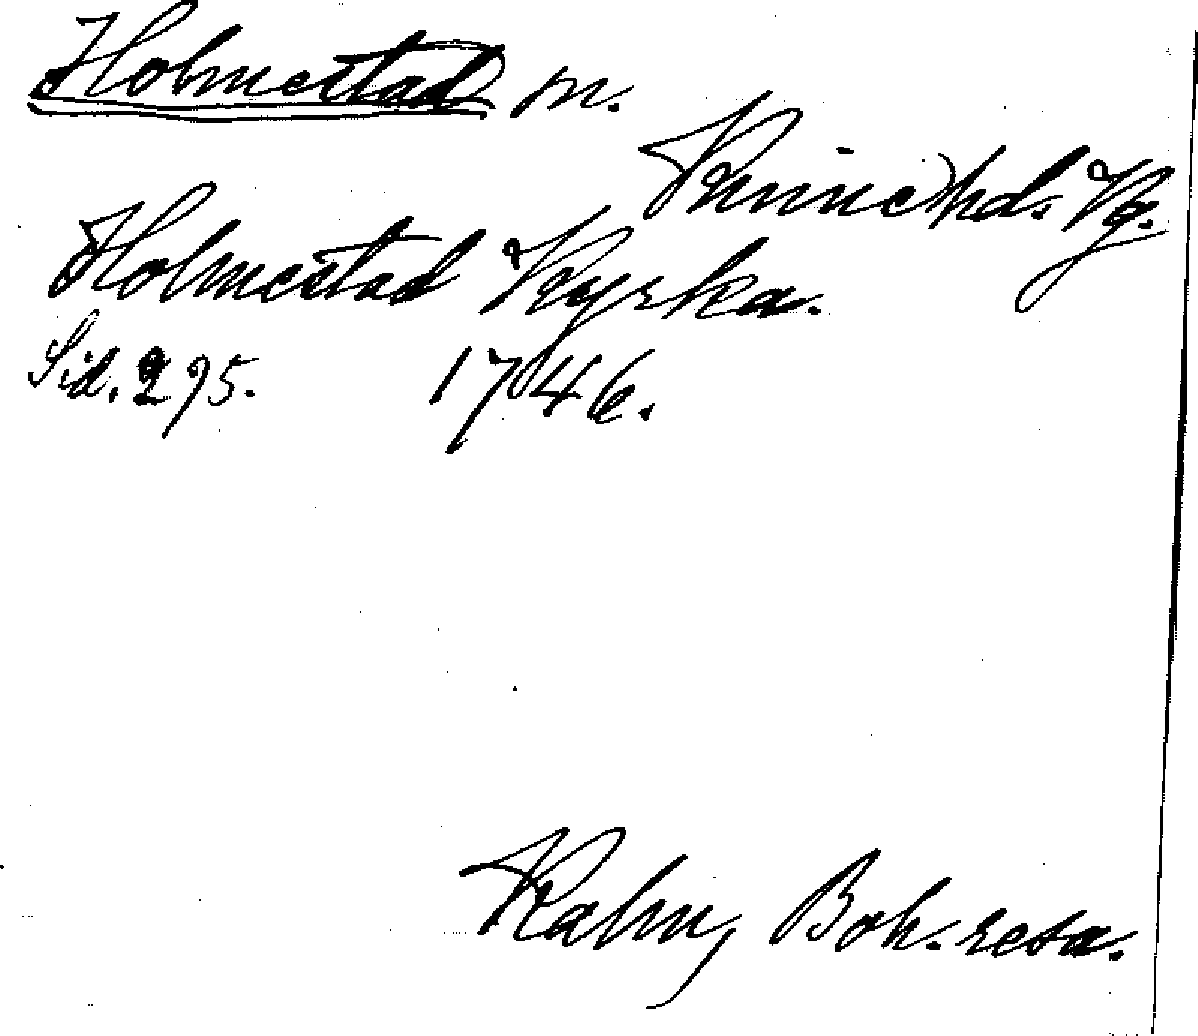 Holmestad sn.
Kinne hd. Vg.
Holmestad Kyrka.
Sid. 275. 1746.
Kalm, Boh. resa.